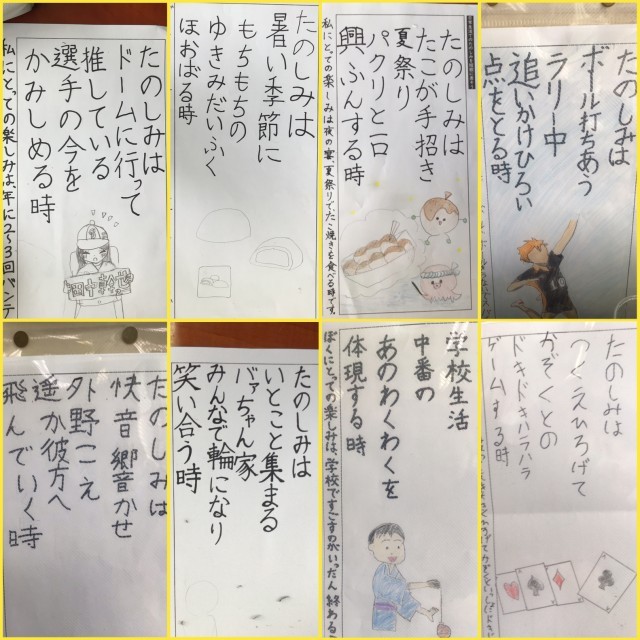 たのしみは
ドームに行って
推している
選手の今を
かみしめる時
私にとっての楽しみは、年に2〜3回バンテ
たのしみは
暑い季節に
もちもちの
ゆきみだいふく
ほおばる時
たのしみは
たこが手招き
夏祭り
パクリと一口
興ふんする時
私にとっての楽しみは夜の宴、夏祭りで、たこ焼きを食べる時です。
たのしみは
ボール打ちあう
ラリー中
追いかけひろい
点をとる時
たのしみは
快音響かせ
外野こえ
遥か彼方へ
飛んでいく時
たのしみは
いとこと集まる
バァちゃん家
みんなで輪になり
笑い合う時
学校生活
中番の
あのわくわくを
体現する時
ぼくにとっての楽しみは、学校ですごすのがいったん終わるこ
たのしみは
つくえひろげて
かぞくとの
ドキドキハラハラ
ゲームする時